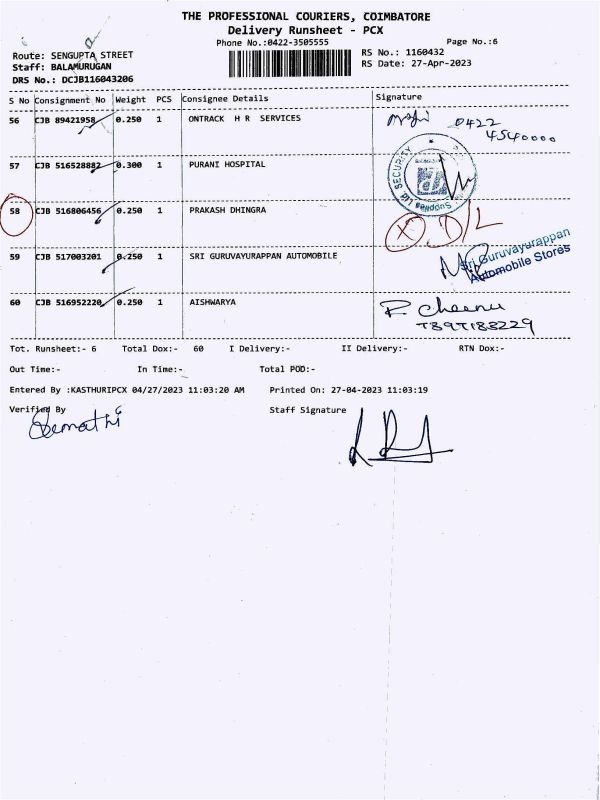 THE PROFESSIONAL COURIERS, COIMBATORE
Delivery Runsheet - PCX
Phone No.:0422-3505555 Page No.:6
Route: SENGUPTA STREET RS No.: 1160432
Staff: BALAMURUGAN RS Date: 27-Apr-2023
DRS No.: DCJB116043206
S No Consignment No Weight PCS Consignee Details Signature
56 CJB 89421958 0.250 1 ONTRACK H R SERVICES 0422
4540000
57 CJB 516528882 0.300 1 PURANI HOSPITAL SECURITY
58 CJB 516806456 0.250 1 PRAKASH DHINGRA X D/L
59 CJB 517003201 0.250 1 SRI GURUVAYURAPPAN AUTOMOBILE Sri Guruvayurappan
Automobile Stores
60 CJB 516952220 0.250 1 AISHWARYA R Cheenu
7897188229
Tot. Runsheet:- 6 Total Dox:- 60 I Delivery:- II Delivery:- RTN Dox:-
Out Time:- In Time:- Total POD:-
Entered By :KASTHURIPCX 04/27/2023 11:03:20 AM Printed On: 27-04-2023 11:03:19
Verified By Staff Signature